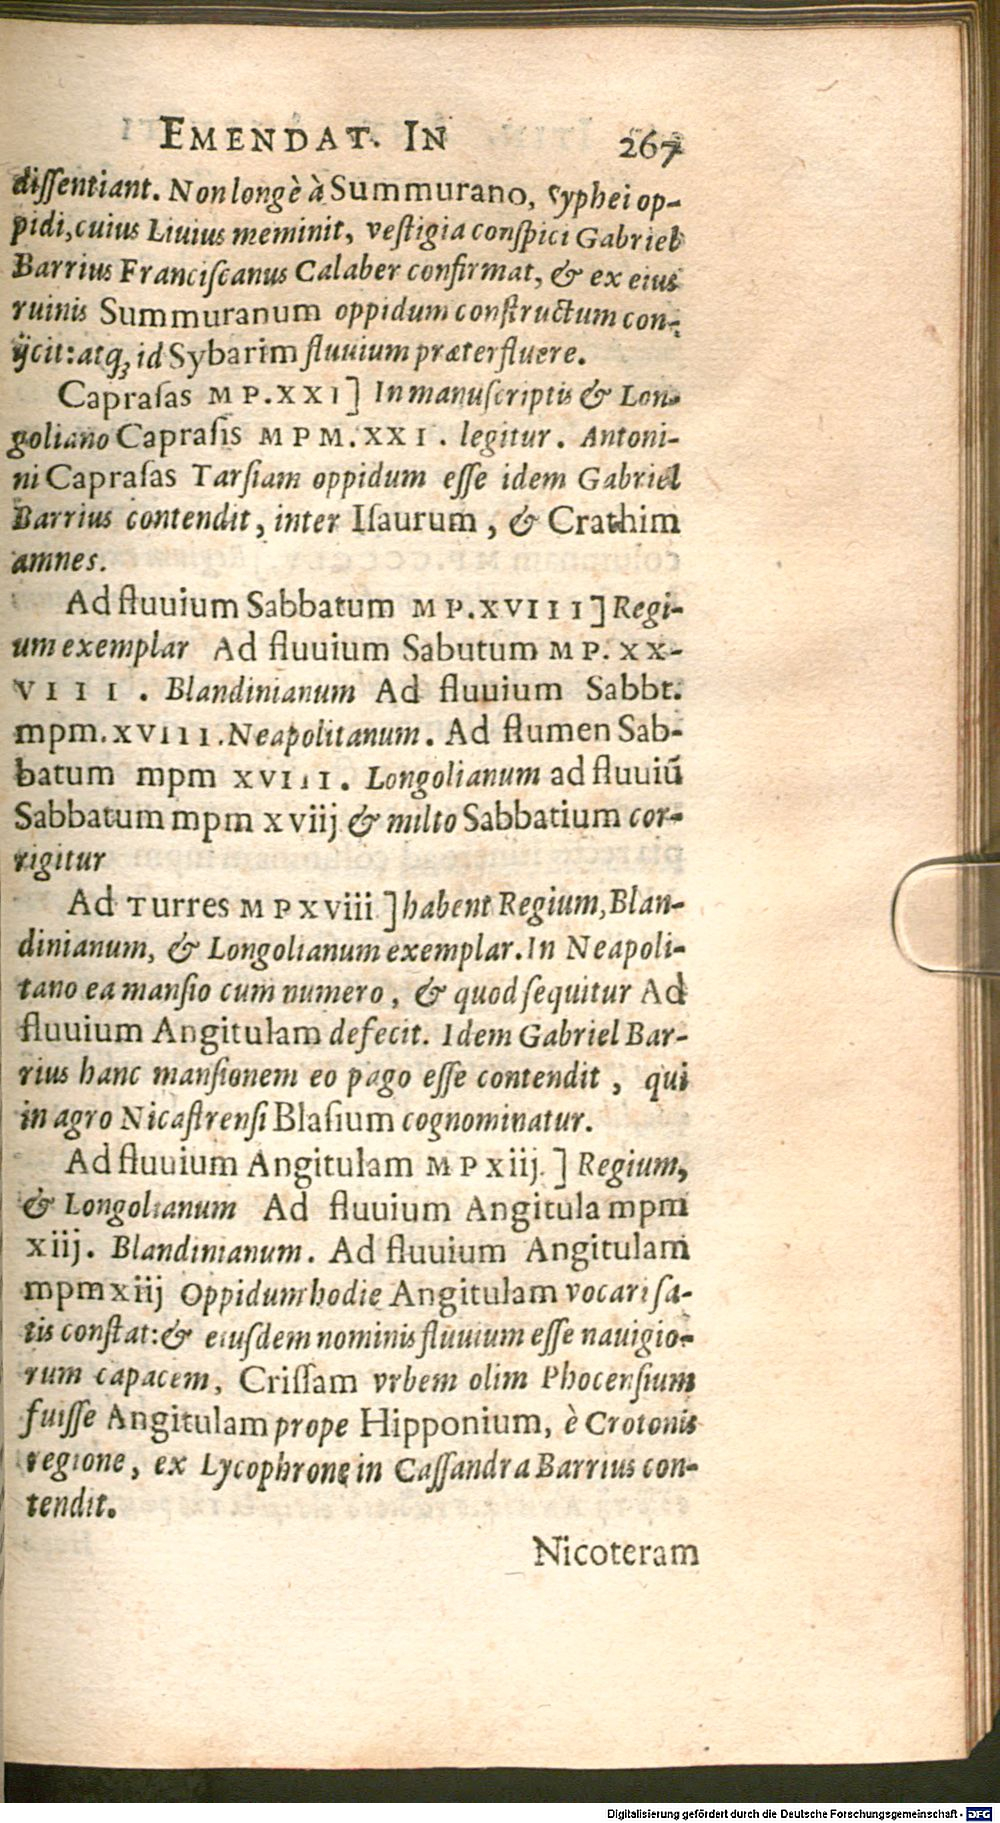 EMENDAT. IN 267
dissentiant. Non longè à Summurano, Syphei op-
pidi, cuius Liuius meminit, vestigia conspici Gabriel
Barrius Franciscanus Calaber confirmat, & ex eius
ruinis Summuranum oppidum constructum con-
ijcit: atq; id Sybarim fluuium præterfluere.
Caprasas MP.XXI] In manuscriptis & Lon-
goliano Caprasis MPM.XXI. legitur. Antoni-
ni Caprasas Tarsiam oppidum esse idem Gabriel
Barrius contendit, inter Isaurum, & Crathim
amnes.
Ad fluuium Sabbatum MP.XVIII] Regi-
um exemplar Ad fluuium Sabutum MP. XX-
VIII. Blandinianum Ad fluuium Sabbt.
mpm.XVIII. Neapolitanum. Ad flumen Sab-
batum mpm XVIII. Longolianum ad fluuiū
Sabbatum mpm xviij & milto Sabbatium cor-
rigitur
Ad Turres MP xviii] habent Regium, Blan-
dinianum, & Longolianum exemplar. In Neapoli-
tano ea mansio cum numero, & quod sequitur Ad
fluuium Angitulam defecit. Idem Gabriel Bar-
rius hanc mansionem eo pago esse contendit, qui
in agro Nicastrensi Blasium cognominatur.
Ad fluuium Angitulam MP xiij.] Regium,
& Longolianum Ad fluuium Angitula mpm
xiij. Blandinianum. Ad fluuium Angitulam
mpm xiij Oppidum hodie Angitulam vocari sa-
tis constat: & eiusdem nominis fluuium esse nauigio-
rum capacem, Crissam vrbem olim Phocensium
fuisse Angitulam prope Hipponium, è Crotonis
regione, ex Lycophrone in Cassandra Barrius con-
tendit.
Nicoteram
Digitalisierung gefördert durch die Deutsche Forschungsgemeinschaft - DFG